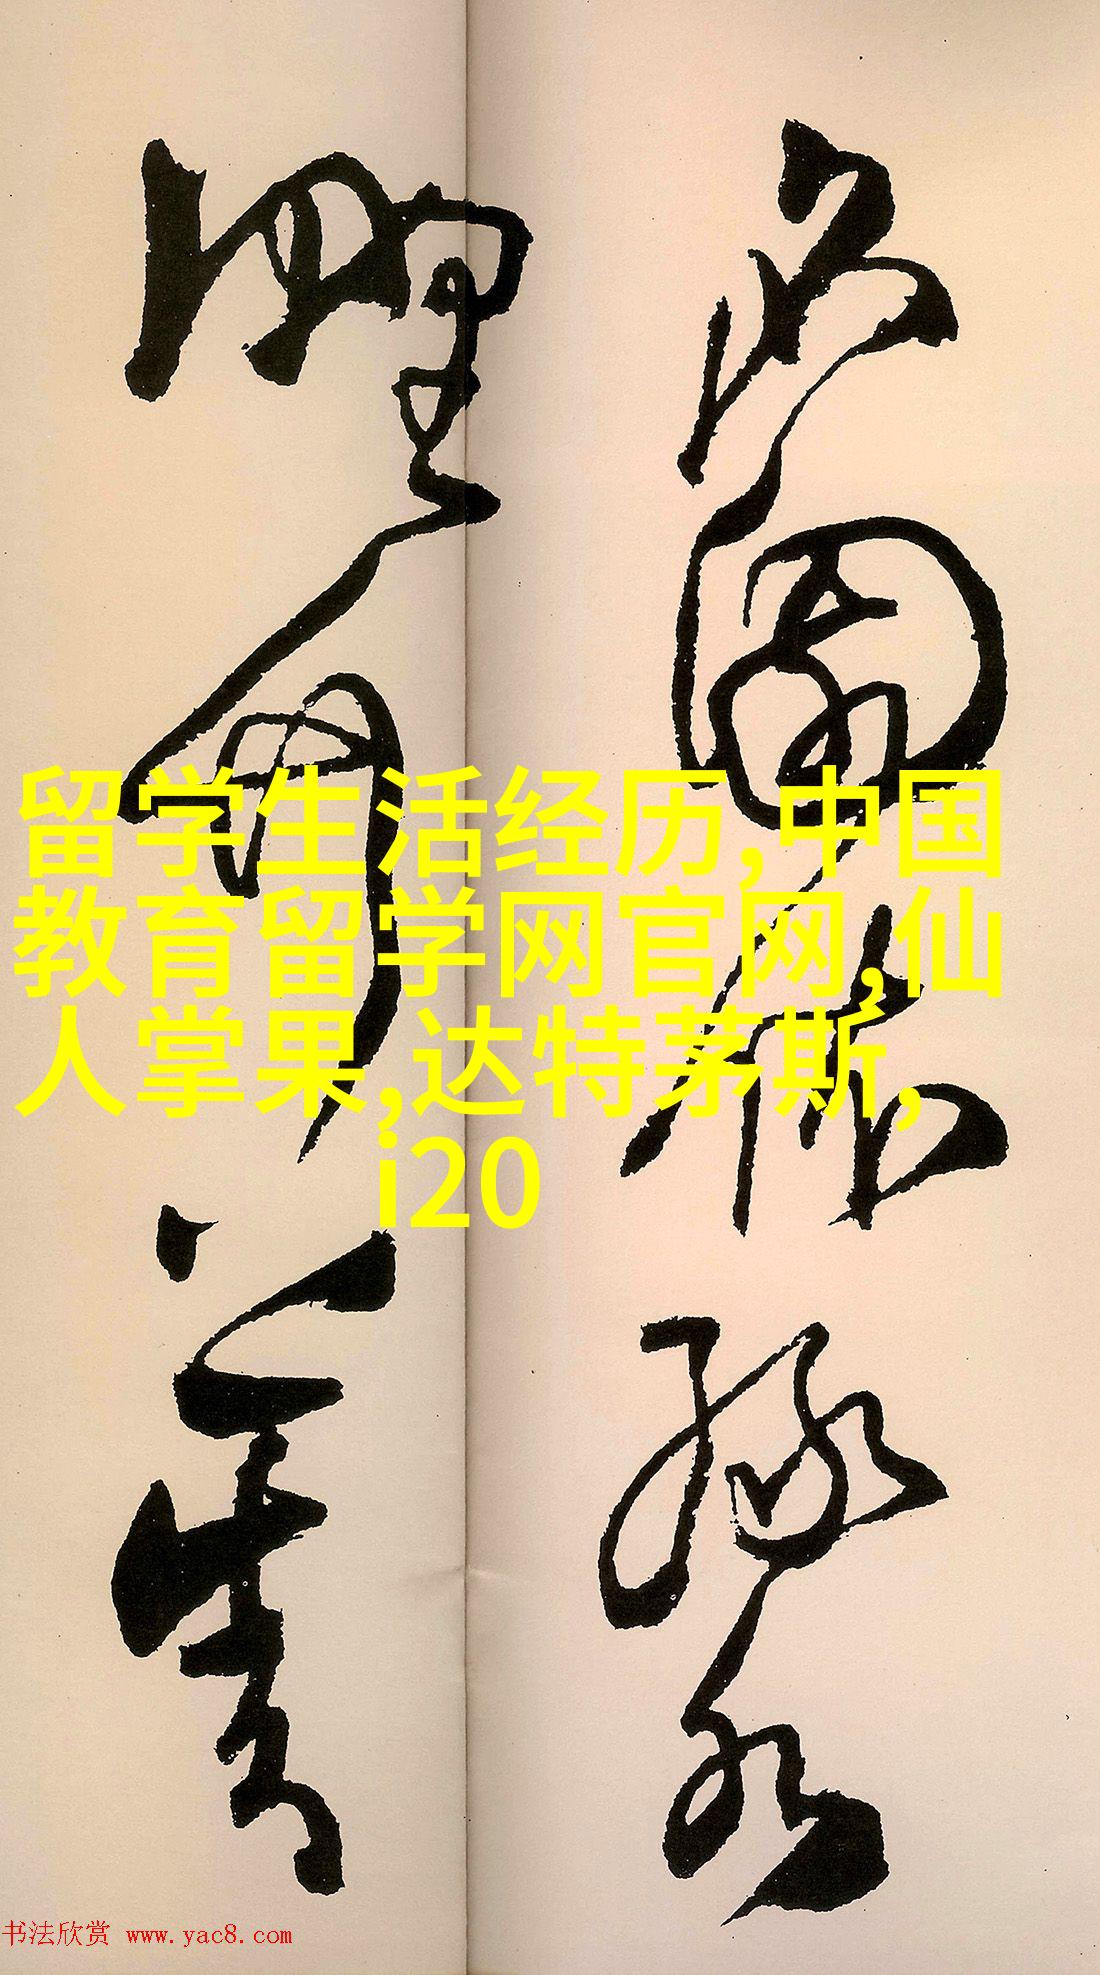 名园依绿水
野竹上青
留学生活经历,中国
教育留学网官网,仙
人掌果,达特茅斯,
i20
书法欣赏 www.yac8.com